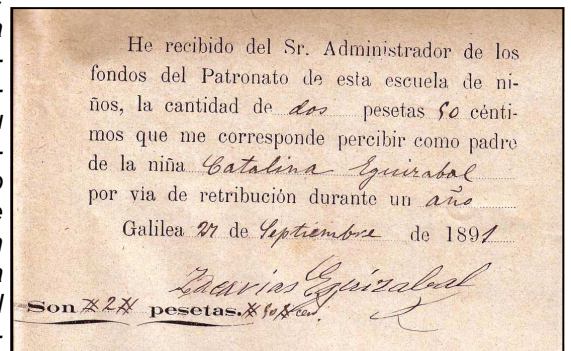 He recibido del Sr. Administrador de los
fondos del Patronato de esta escuela de ni-
ños, la cantidad de dos pesetas 50 cénti-
mos que me corresponde percibir como padre
de la niña Catalina Eguizabal
por via de retribución durante un año
Galilea 27 de Septiembre de 1891
Zacarias Eguizabal
Son 2 pesetas. 50 cen.